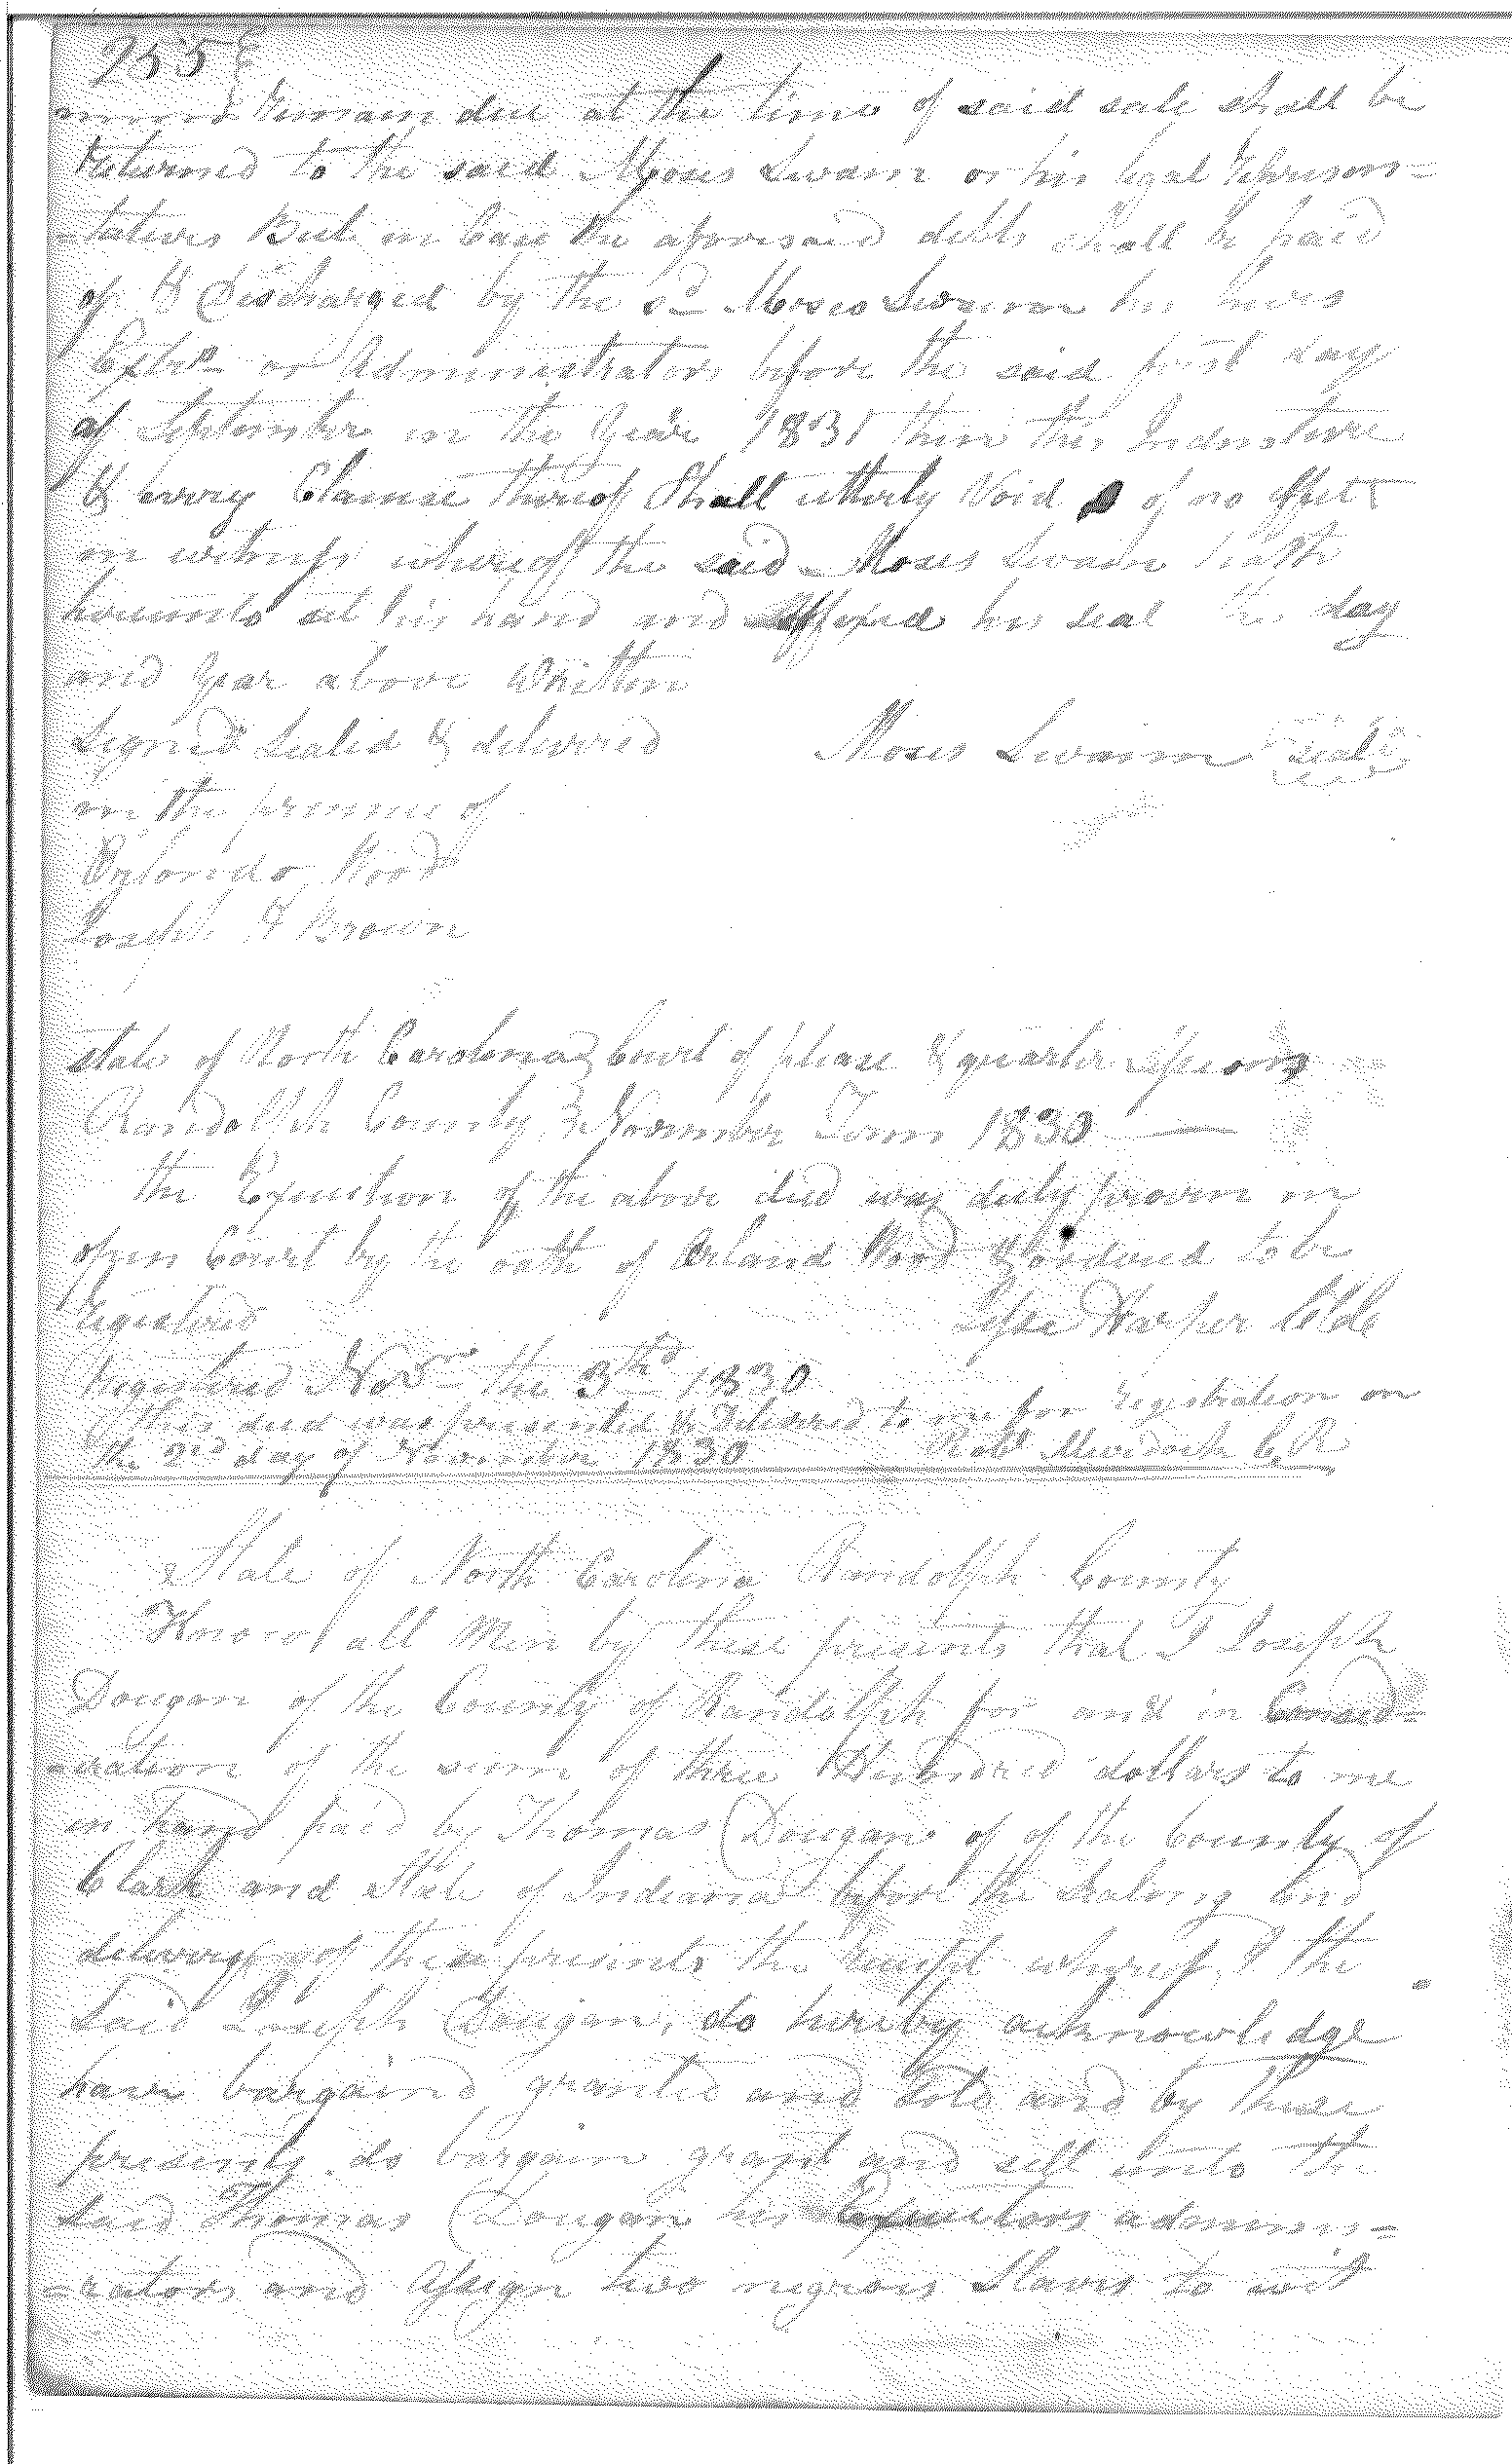 255
remain due at the time of said sale shall be
returned to the said Moses Swaim or his legal Represen=
=tatives But in Case the aforesaid debts Shall be paid
of & Discharged by the sd Moses Swaim his heirs
Extrs or Administrators before the said first day
of September in the Year 1831 then this Indenture
& every Clause thereof Shall utterly Void of no effect
in witness whereof the said Moses Swaim hath
hereunto set his hand and affixed his seal the day
and year above Written
Signed Sealed & delivered
Moses Swaim seal
in the presence of
Orlando Wood
Joseph Brown
State of North Carolina } Court of please & quarter Sessions
Randolph County } November Term 1830
the Execution of the above deed was duly proven in
open Court by the oath of Orland Wood & ordered to be
registered
Jesse Harper Clk
Registered Nov the 3rd 1830
this deed was presented & Delivered to me for registration on
the 2nd day of November 1830 Robt Murdock C. R
State of North Carolina Randolph County
Know all Men by these presents that I Joseph
Dougan of the County of Randolph for and in Consid=
=eration of the sum of three Hundred dollars to me
in hand paid by Thomas Dougan of of the County of
Clark and State of Indiana before the Sealing and
delivery of these presents the receipt whereof I the
Said Joseph Dougan, do hereby acknowledge
have bargaind granted and Sold and by these
presents do bargain grant and sell unto the
Said Thomas Dougan his Executors adminis=
=rators and Assign two negroes Slaves to wit